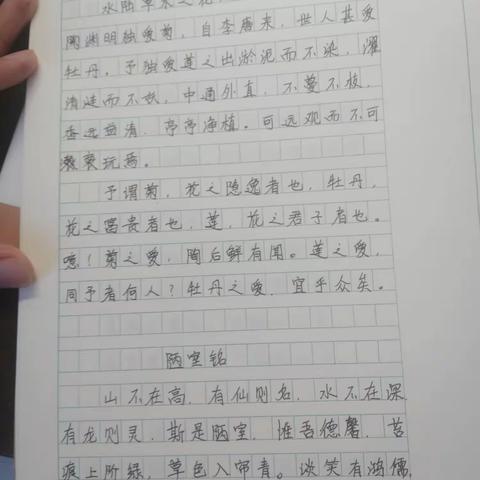 水陆草木之花，
陶渊明独爱菊，自李唐来，世人甚爱
牡丹。予独爱莲之出淤泥而不染，濯
清涟而不妖，中通外直，不蔓不枝，
香远益清，亭亭净植。可远观而不可
亵玩焉。
予谓菊，花之隐逸者也，牡丹，
花之富贵者也，莲，花之君子者也。
噫！菊之爱，陶后鲜有闻。莲之爱，
同予者何人？牡丹之爱，宜乎众矣。
陋室铭
山不在高，有仙则名，水不在深，
有龙则灵，斯是陋室，惟吾德馨，苔
痕上阶绿，草色入帘青。谈笑有鸿儒，